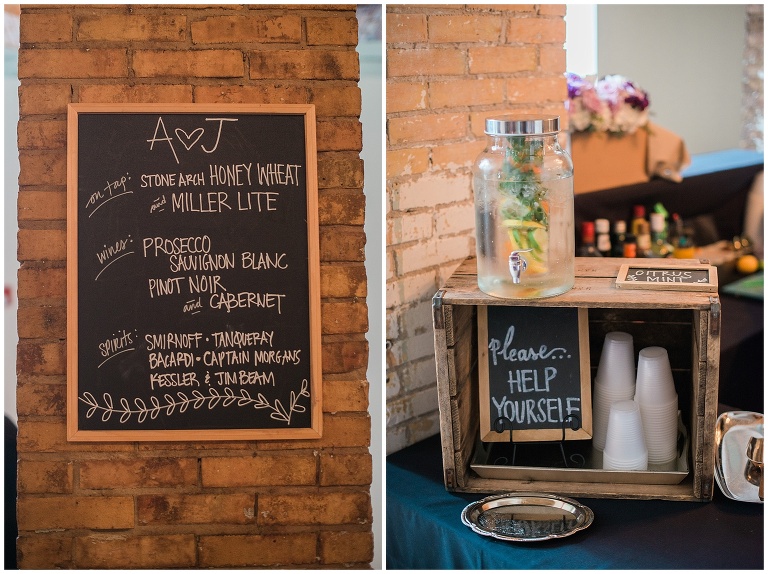 A♡J
on tap: STONE ARCH HONEY WHEAT
and MILLER LITE
wines: PROSECCO
SAUVIGNON BLANC
PINOT NOIR
and CABERNET
spirits: SMIRNOFF • TANQUERAY
BACARDI • CAPTAIN MORGANS
KESSLER & JIM BEAM
CITRUS
MINT
please...
HELP
YOURSELF